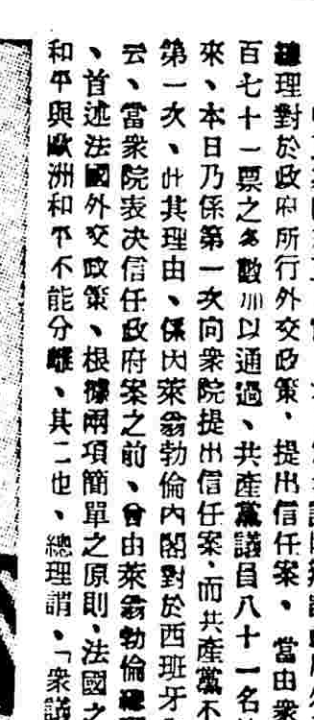 總理對於政府所行外交政策、提出信任案、當由衆
百七十一票之多數加以通過、共產黨議員八十一名
來、本日乃係第一次向衆院提出信任案、而共產黨不
第一次、此其理由、係因萊翁勃倫內閣對於西班牙
云、當衆院表决信任政府案之前、曾由萊翁勃倫總
、首述法國外交政策、根據兩項簡單之原則、法國之
和平與歐洲和平不能分離、其二也、總理謂、「衆議